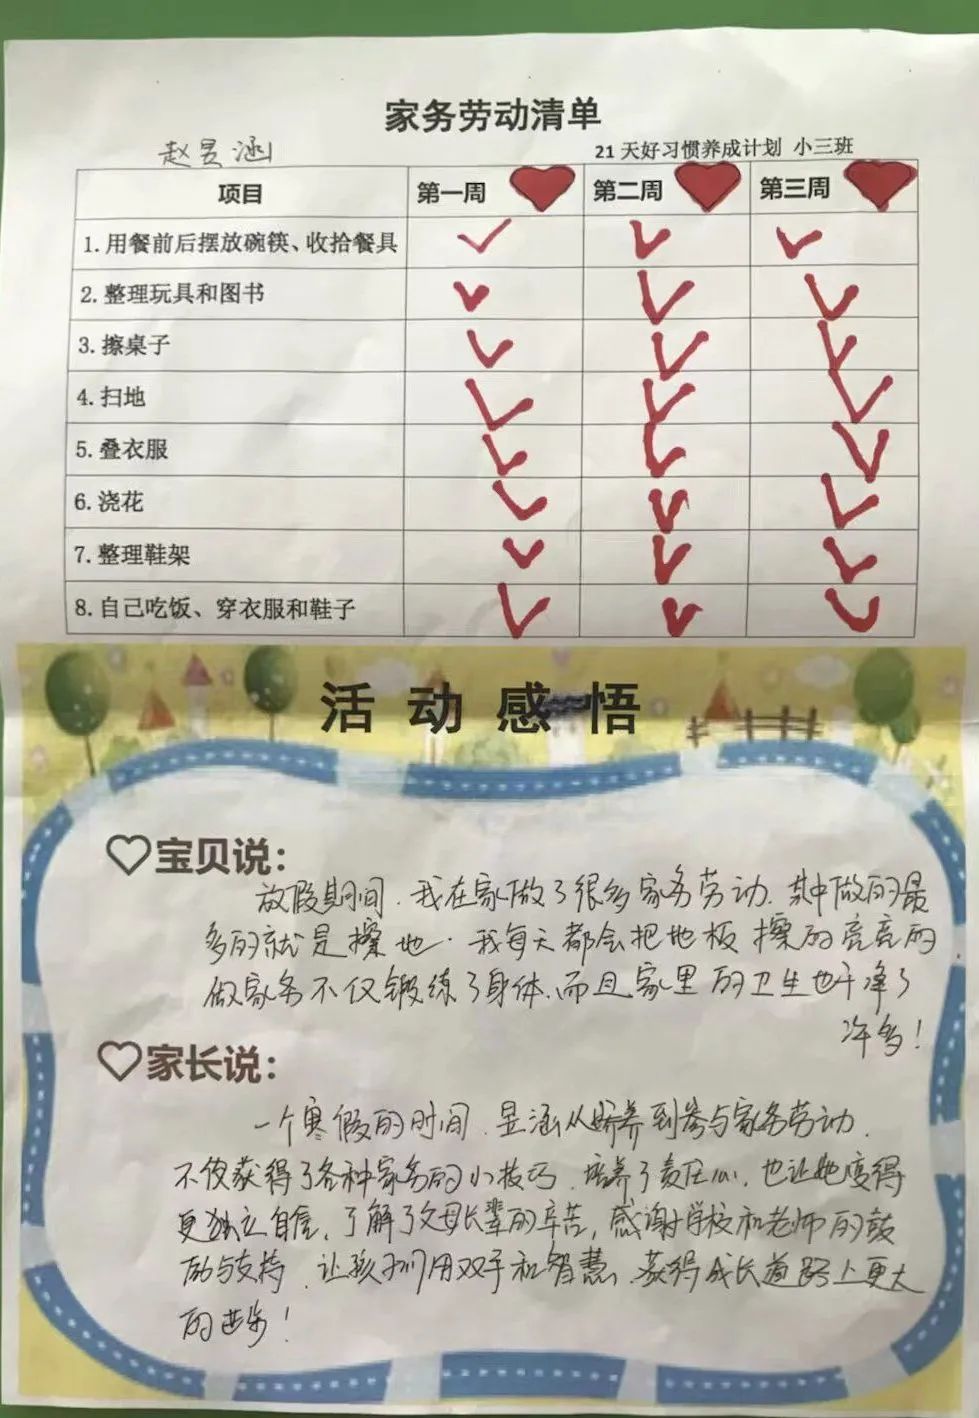 家务劳动清单
赵昱涵
21天好习惯养成计划 小三班
项目 第一周 第二周 第三周
1.用餐前后摆放碗筷、收拾餐具
2.整理玩具和图书
3.擦桌子
4.扫地
5.叠衣服
6.浇花
7.整理鞋架
8.自己吃饭、穿衣服和鞋子
活动感悟
宝贝说：
放假期间，我在家做了很多家务劳动，其中做的最
多的就是擦地．我每天都会把地板擦的亮亮的
做家务不仅锻练了身体，而且家里的卫生也干净了
许多！
家长说：
一个寒假的时间，昱涵从娇养到参与家务劳动，
不仅获得了各种家务的小技巧，培养了责任心，也让她变得
更独立自信，了解了父母长辈的辛苦，感谢学校和老师的鼓
励与支持，让孩子们用双手和智慧，获得成长道路上更大
的进步！